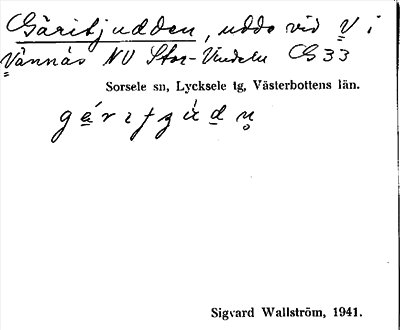 Gäritjudden, udde vid V i
Vännäs NV Stor-Vindeln C 33
Sorsele sn, Lycksele tg, Västerbottens län.
Sigvard Wallström, 1941.